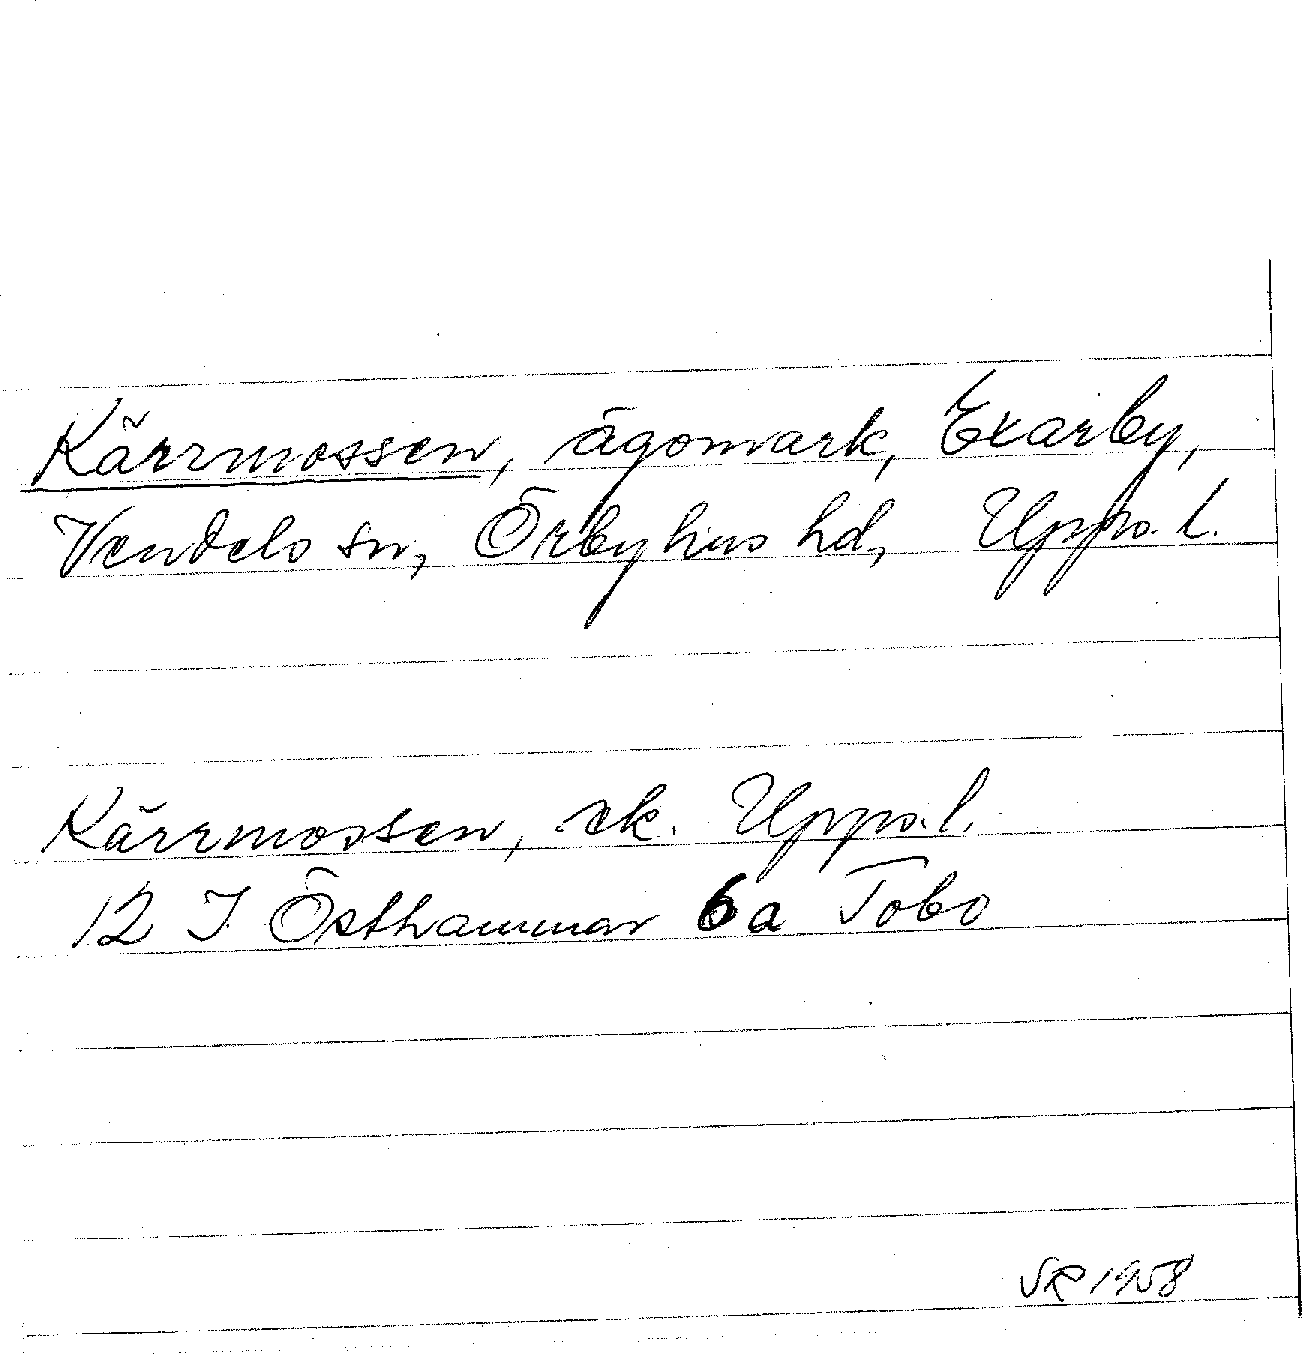 Kärrmossen, ägomark, Exarby,
Vendels sn, Örbyhus hd, Upps. l.
Kärrmossen, ek. Upps. l.
12 I Östhammar 6a Tobo
SR 1958